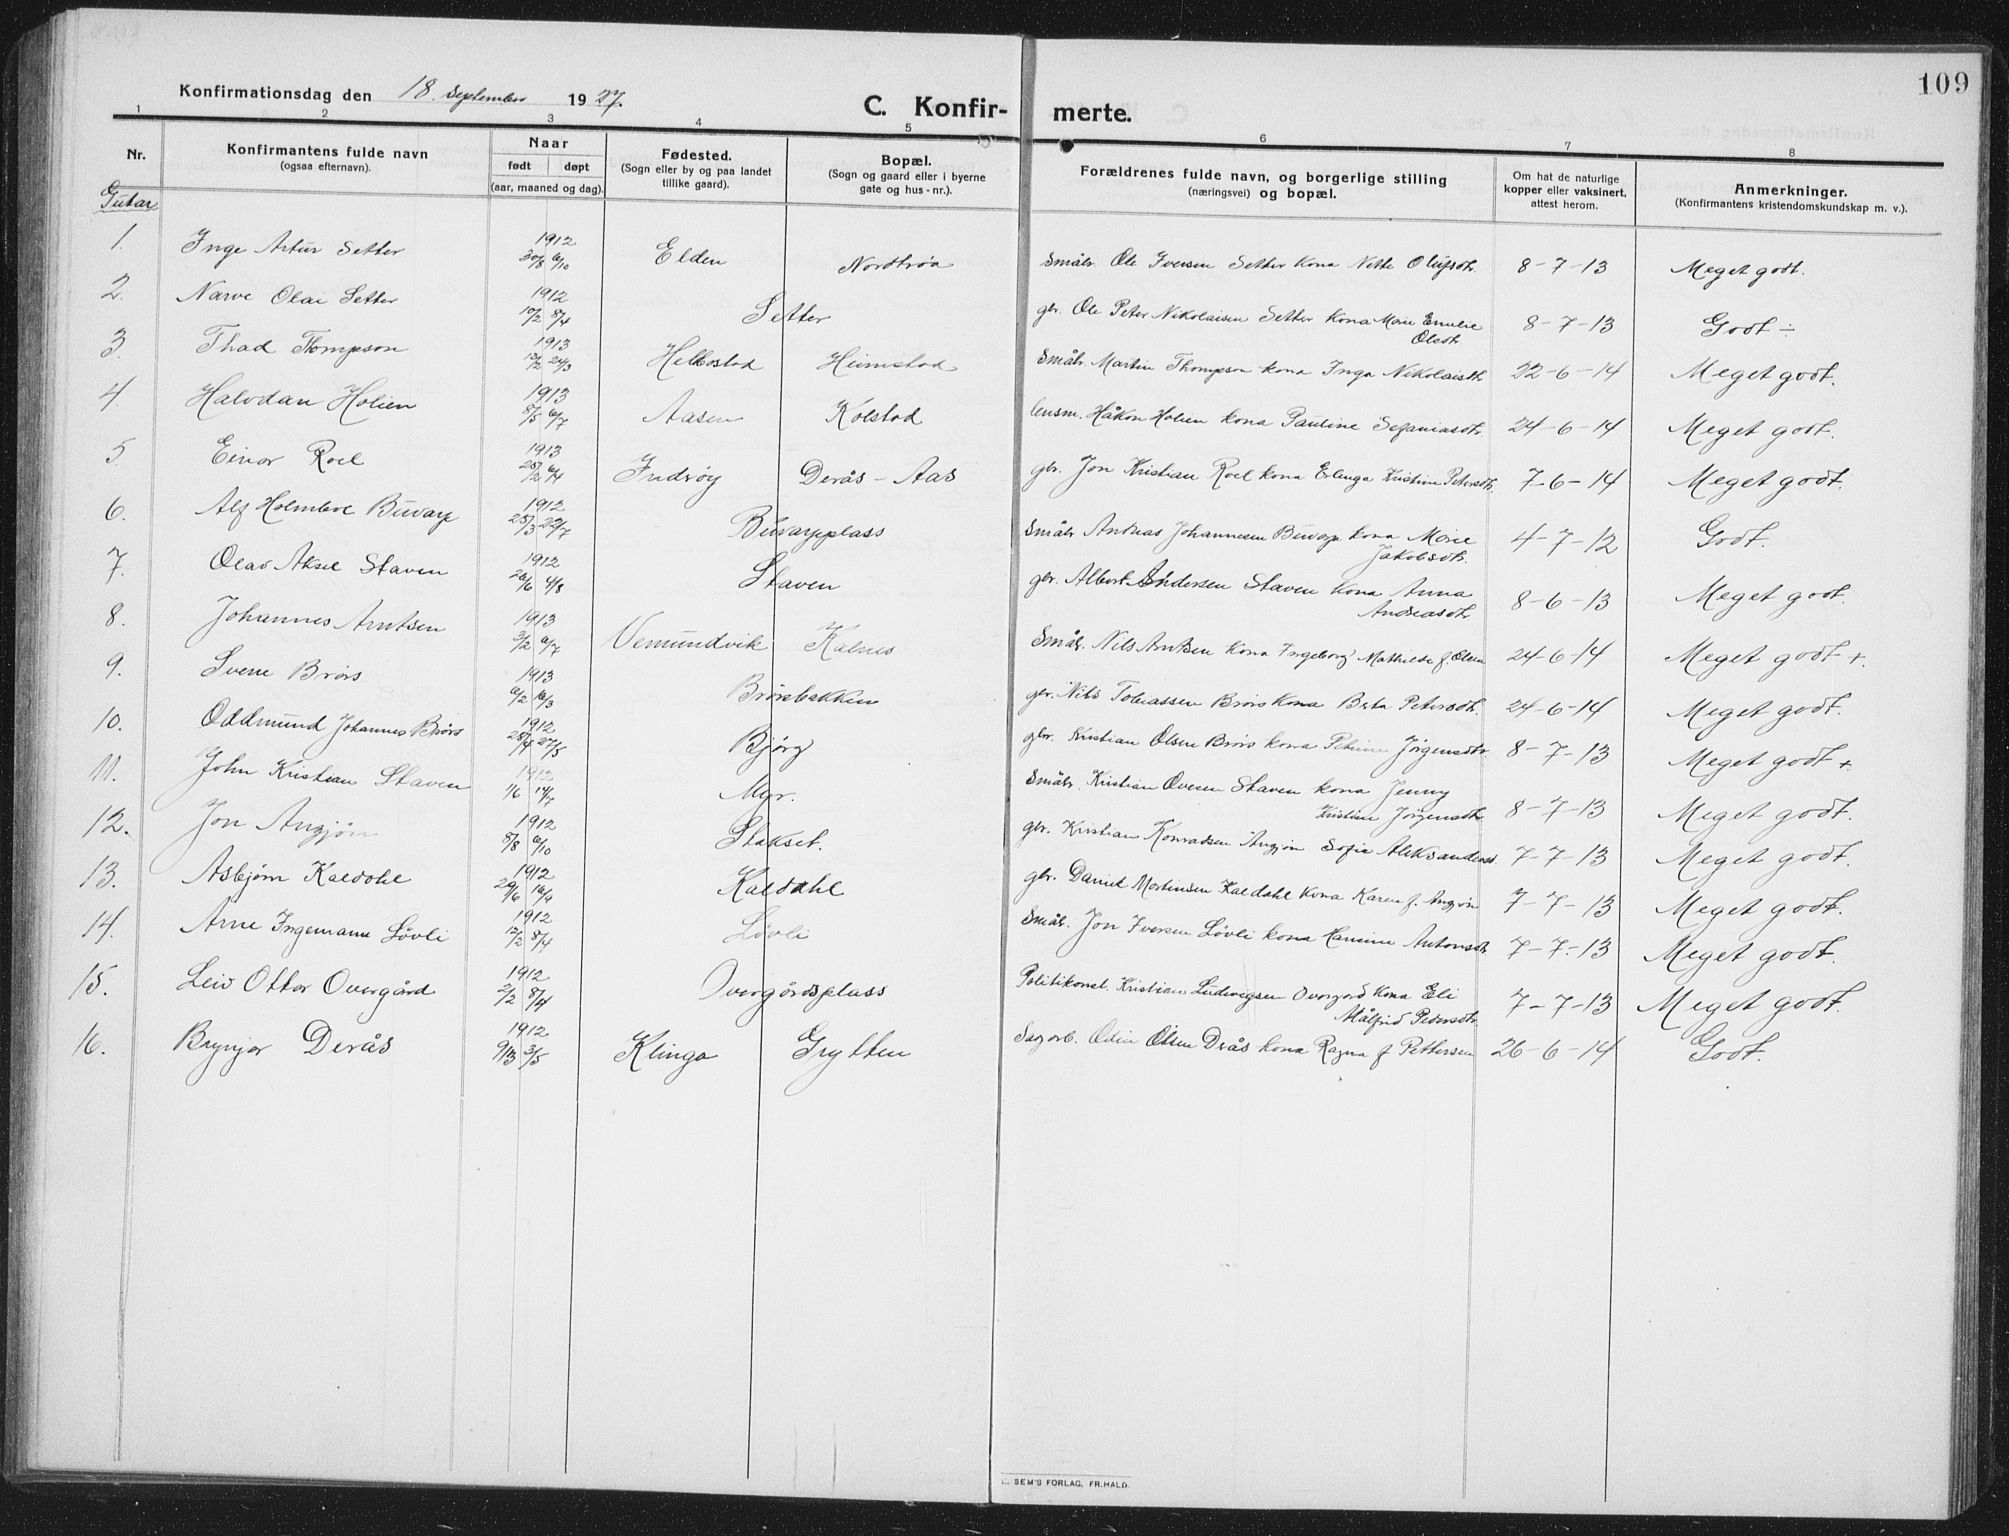 109
Konfirmationsdag den 18. september 1927.
C. Konfir- merte.
1 2 3 4 5 6 7 8
Nr.
Konfirmantens fulde navn
(ogsaa efternavn).
Naar
født døpt
(aar, maaned og dag).
Fødested.
(Sogn eller by og paa landet
tillike gaard).
Bopæl.
(Sogn og gaard eller i byerne
gate og hus-nr.).
Forældrenes fulde navn, og borgerlige stilling
(næringsvei) og bopæl.
Om hat de naturlige
kopper eller vaksinert,
attest herom.
Anmerkninger.
(Konfirmantens kristendomskundskap m. v.).
Gutar
1. Inge Artur Setter 1912 30/8 6/10 Elden Nordtrøa Småbr. Ole Iversen Setter kona Nette Olufsdtr. 8-7-13 Meget godt.
2. Narve Olai Setter 1912 10/2 8/4 Setter gbr. Ole Peter Nikolaisen Setter kona Marie Emelie
Olsdtr. 8-7-13 Godt ÷
3. Thad Thompson 1913 13/2 24/3 Helbostad Heimstad Småbr. Martin Thompson kona Inga Nikolaisdtr. 22-6-14 Meget godt.
4 Halvdan Holien 1913 8/5 6/7 Aasen Kolstad lensm. Håkon Holien kona Pauline Sefaniasdtr. 24-6-14 Meget godt.
5. Einar Roel 1913 25/2 6/4 Inderøy Derås-Aas gbr. Jon Kristian Roel kona Elinga Kristine Petersdtr. 7-6-14 Meget godt.
6. Alf Holmboe Buvarp 1912 25/3 22/7 Buvarpplass Småbr. Andreas Johannesen Buvarp kona Marie
Jakobsdtr. 4-7-12 Godt.
7. Olav Aksel Staven 1912 26/6 4/8 Staven gbr. Albert Andersen Staven kona Anna
Andreasdtr. 8-6-13 Meget godt.
8. Johannes Arntsen 1913 3/2 6/7 Vemundvik Kalnes Småbr. Nils Arntsen kona Ingeborg Mathilde f. Olsen 24-6-14 Meget godt +.
9. Sverre Brørs 1913 6/2 16/3 Brørsbakken gbr. Nils Tobiassen Brørs kona Berta Petersdtr. 24-6-14 Meget godt.
10. Oddmund Johannes Brørs 1912 28/4 27/5 Bjørg gbr. Kristian Olsen Brørs kona Petrine Jørgensdtr. 8-7-13 Meget godt +.
11. John Kristian Staven 1912 1/6 14/7 Myr. Småbr. Kristian Ovesen Staven kona Jenny
Kristine Jørgensdtr. 8-7-13 Meget godt.
12. Jon Angjøn 1912 8/8 6/10 Stakset. gbr. Kristian Konradsen Angjøn Sofie Aleksandersd. 7-7-13 Meget godt.
13. Asbjørn Kaldahl 1912 29/6 Kaldahl gbr. Daniel Martinsen Kaldahl kona Karen f. Angjøn 7-7-13 Meget godt.
14. Arne Ingemann Løvli 1912 12/2 8/4 Løvli Småbr. Jon Iversen Løvli kona Hansine Antonsdtr. 7-7-13 Meget godt.
15. Leiv Ottar Overgård 1912 2/2 8/4 Overgårdsplass Politikonst. Kristian Ludvigsen Overgård kona Eli
Målfrid Pedersdtr. 7-7-13 Meget godt.
16. Brynjar Derås 1912 3/5 Klinga Grytten Sagarb. Odin Olsen Derås kona Ragna f Pettersen 26-6-14 Godt.
SEM'S FORLAG, FR.HALD.